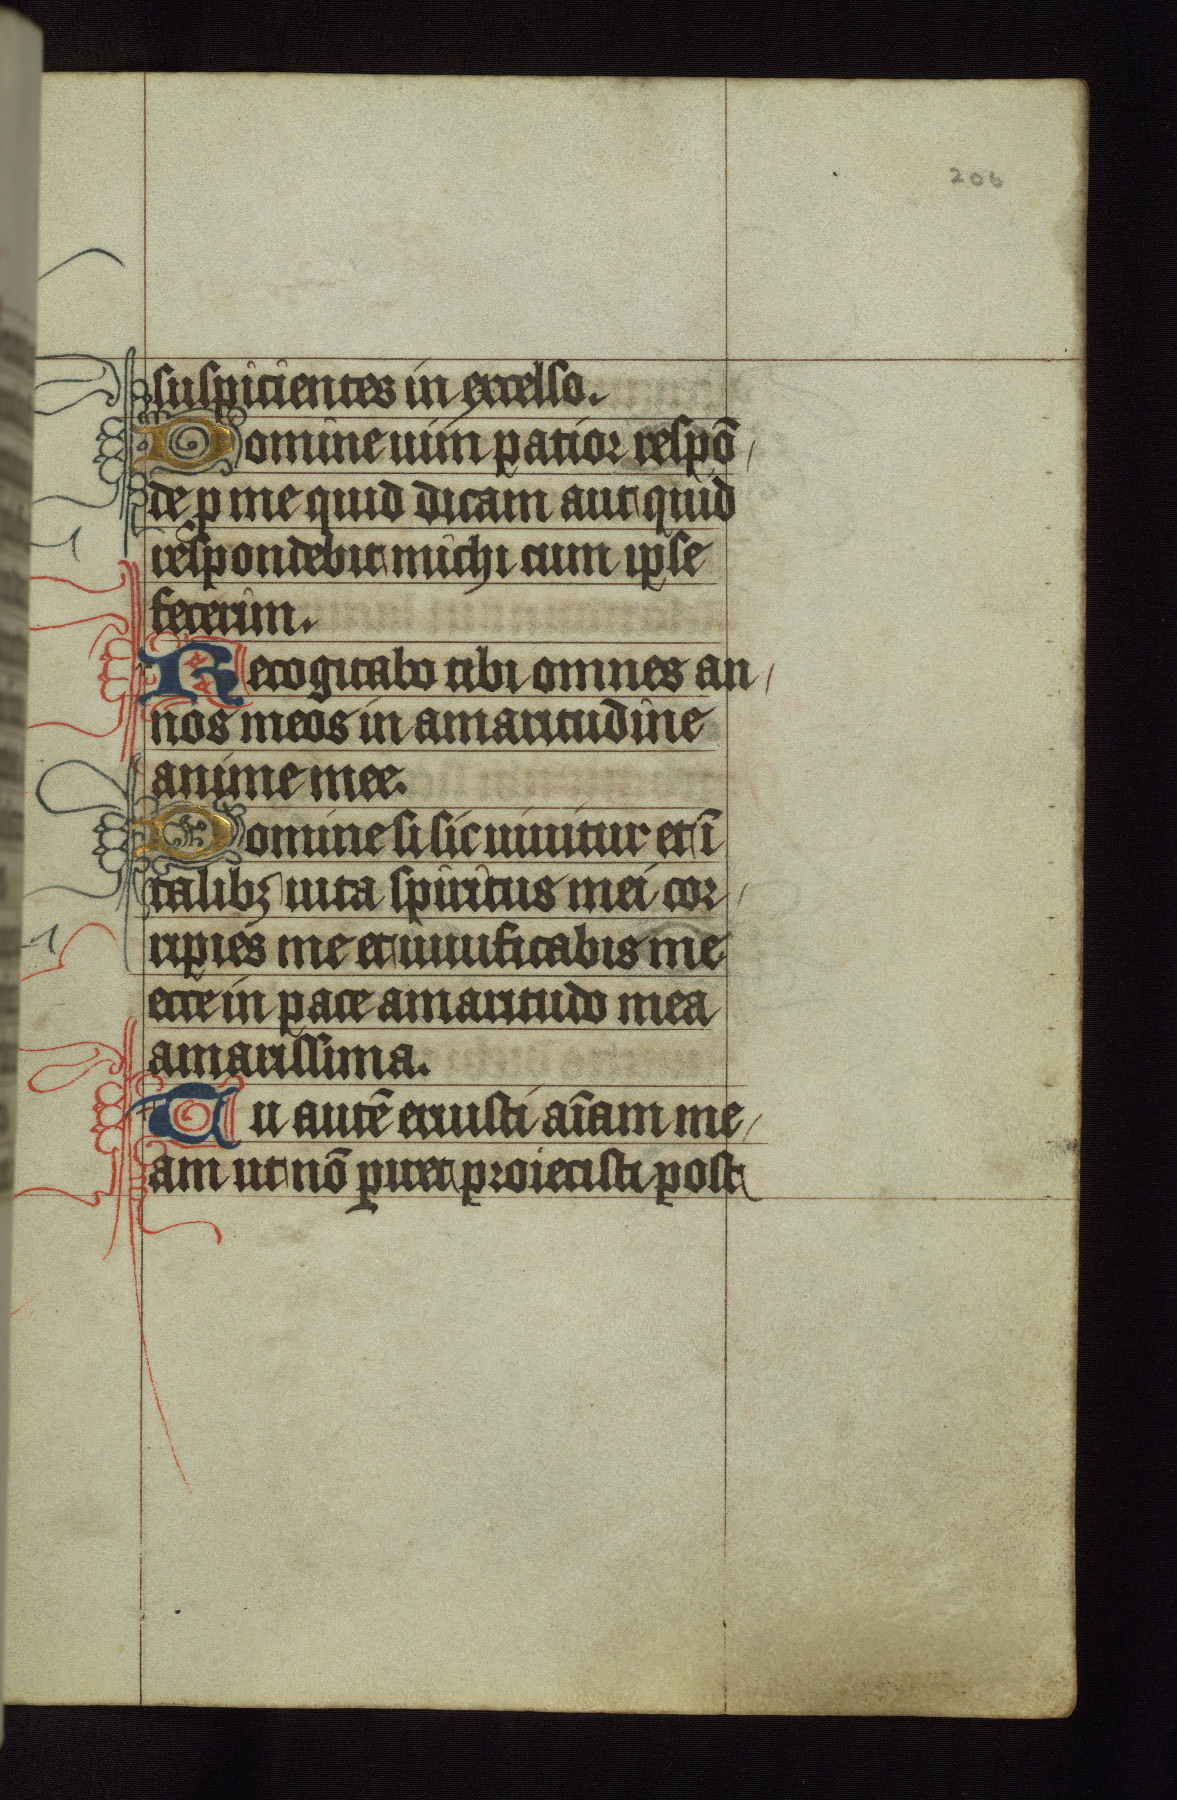 206
suspicientes in excelso.
Domine uim patior respō
de p me quid dicam aut quid
respondebit michi cum ipse
fecerim.
Recogitabo tibi omnes an
nos meos in amaritudine
anime mee.
Domine si sic uiuitur et ī
talibꝫ uita spiritus mei cor
ripies me et uiuificabis me
ecce in pace amaritudo mea
amarissima.
Tu autē eruisti aīam me
am ut nō piret proiecisti post